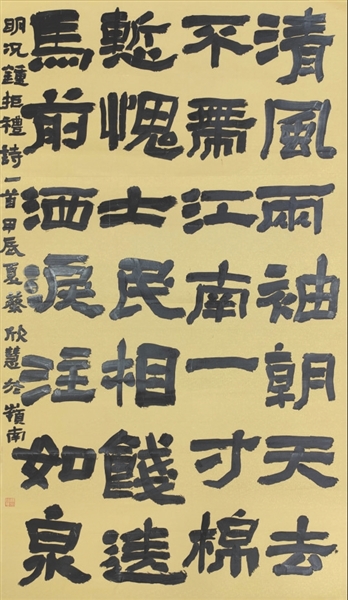 清風兩袖朝天去
不帶江南一寸棉
慙愧士民相餞送
馬前洒淚注如泉
明況鍾拒禮詩一首甲辰夏蔡欣慧於嶺南